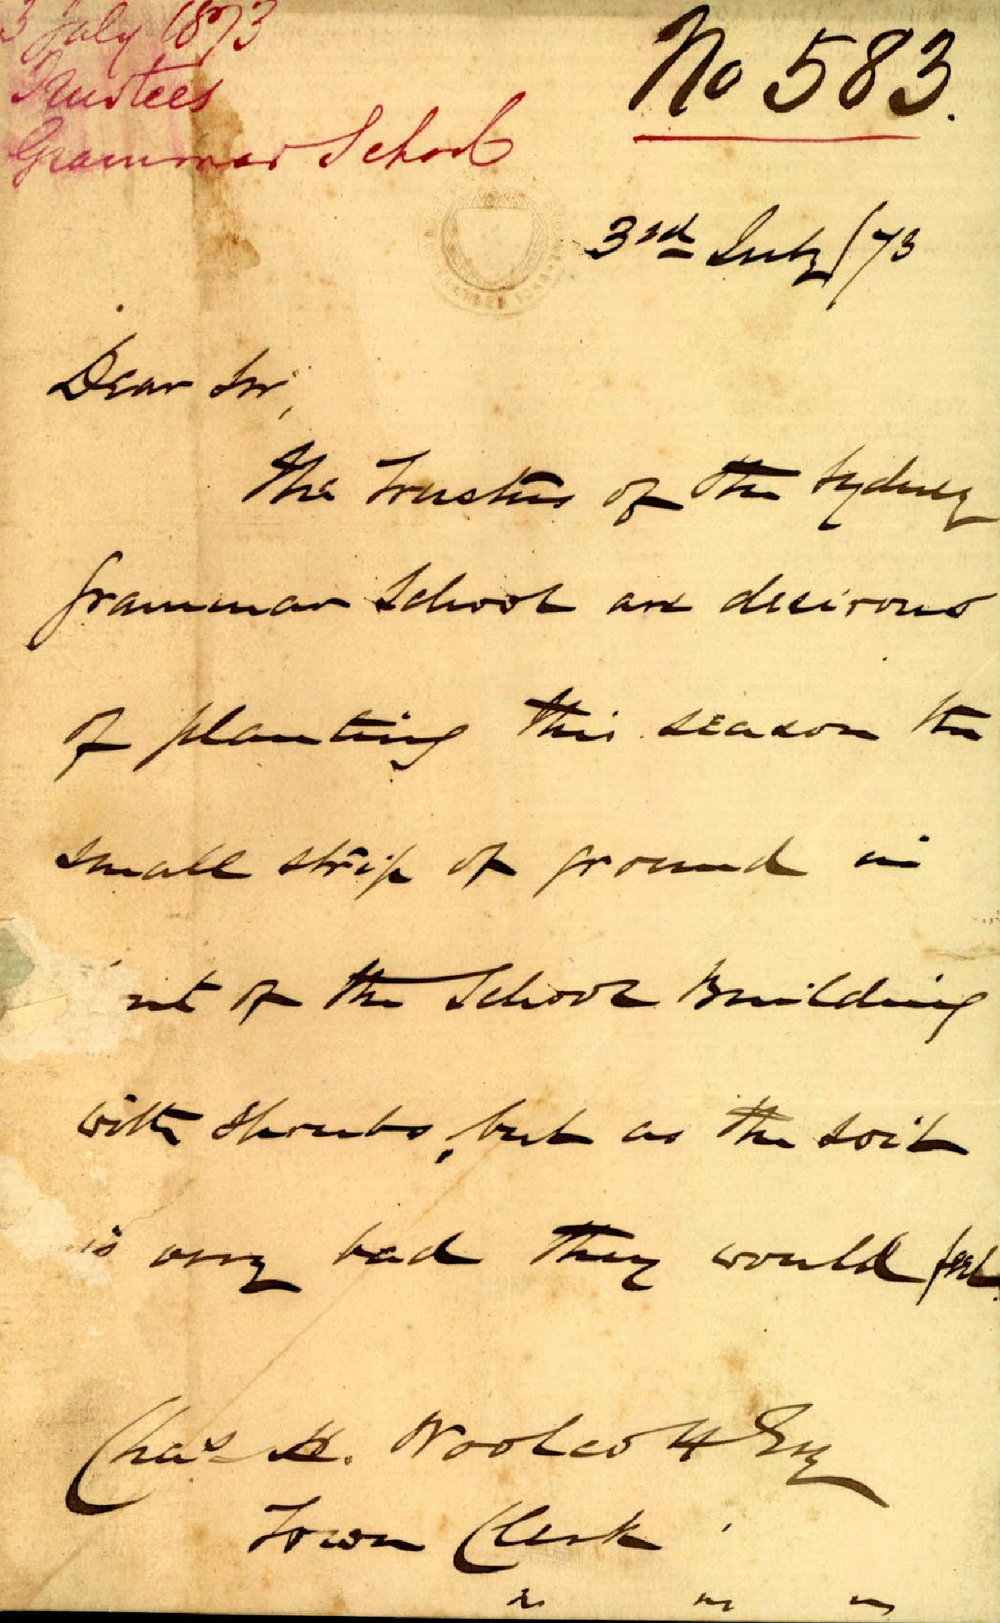 3 July 1873
Trustees
Grammar School
No 583.
3rd July /73
Dear Sir,
The Trustees of the Sydney
Grammar School are desirous
of planting this season the
small strip of ground in
nt of the School Building
with shrubs, but as the soil
is very bad they would feel
Chas. H. Woolcott Esq
Town Clerk